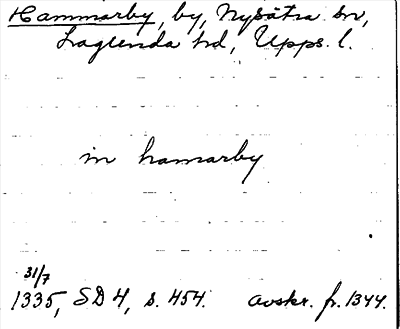 Hammarby, by, Nysätra sn,
Lagunda hd, Upps. l.
in hamarby
31/7
1335, SD 4, s. 454. avskr. fr. 1344.